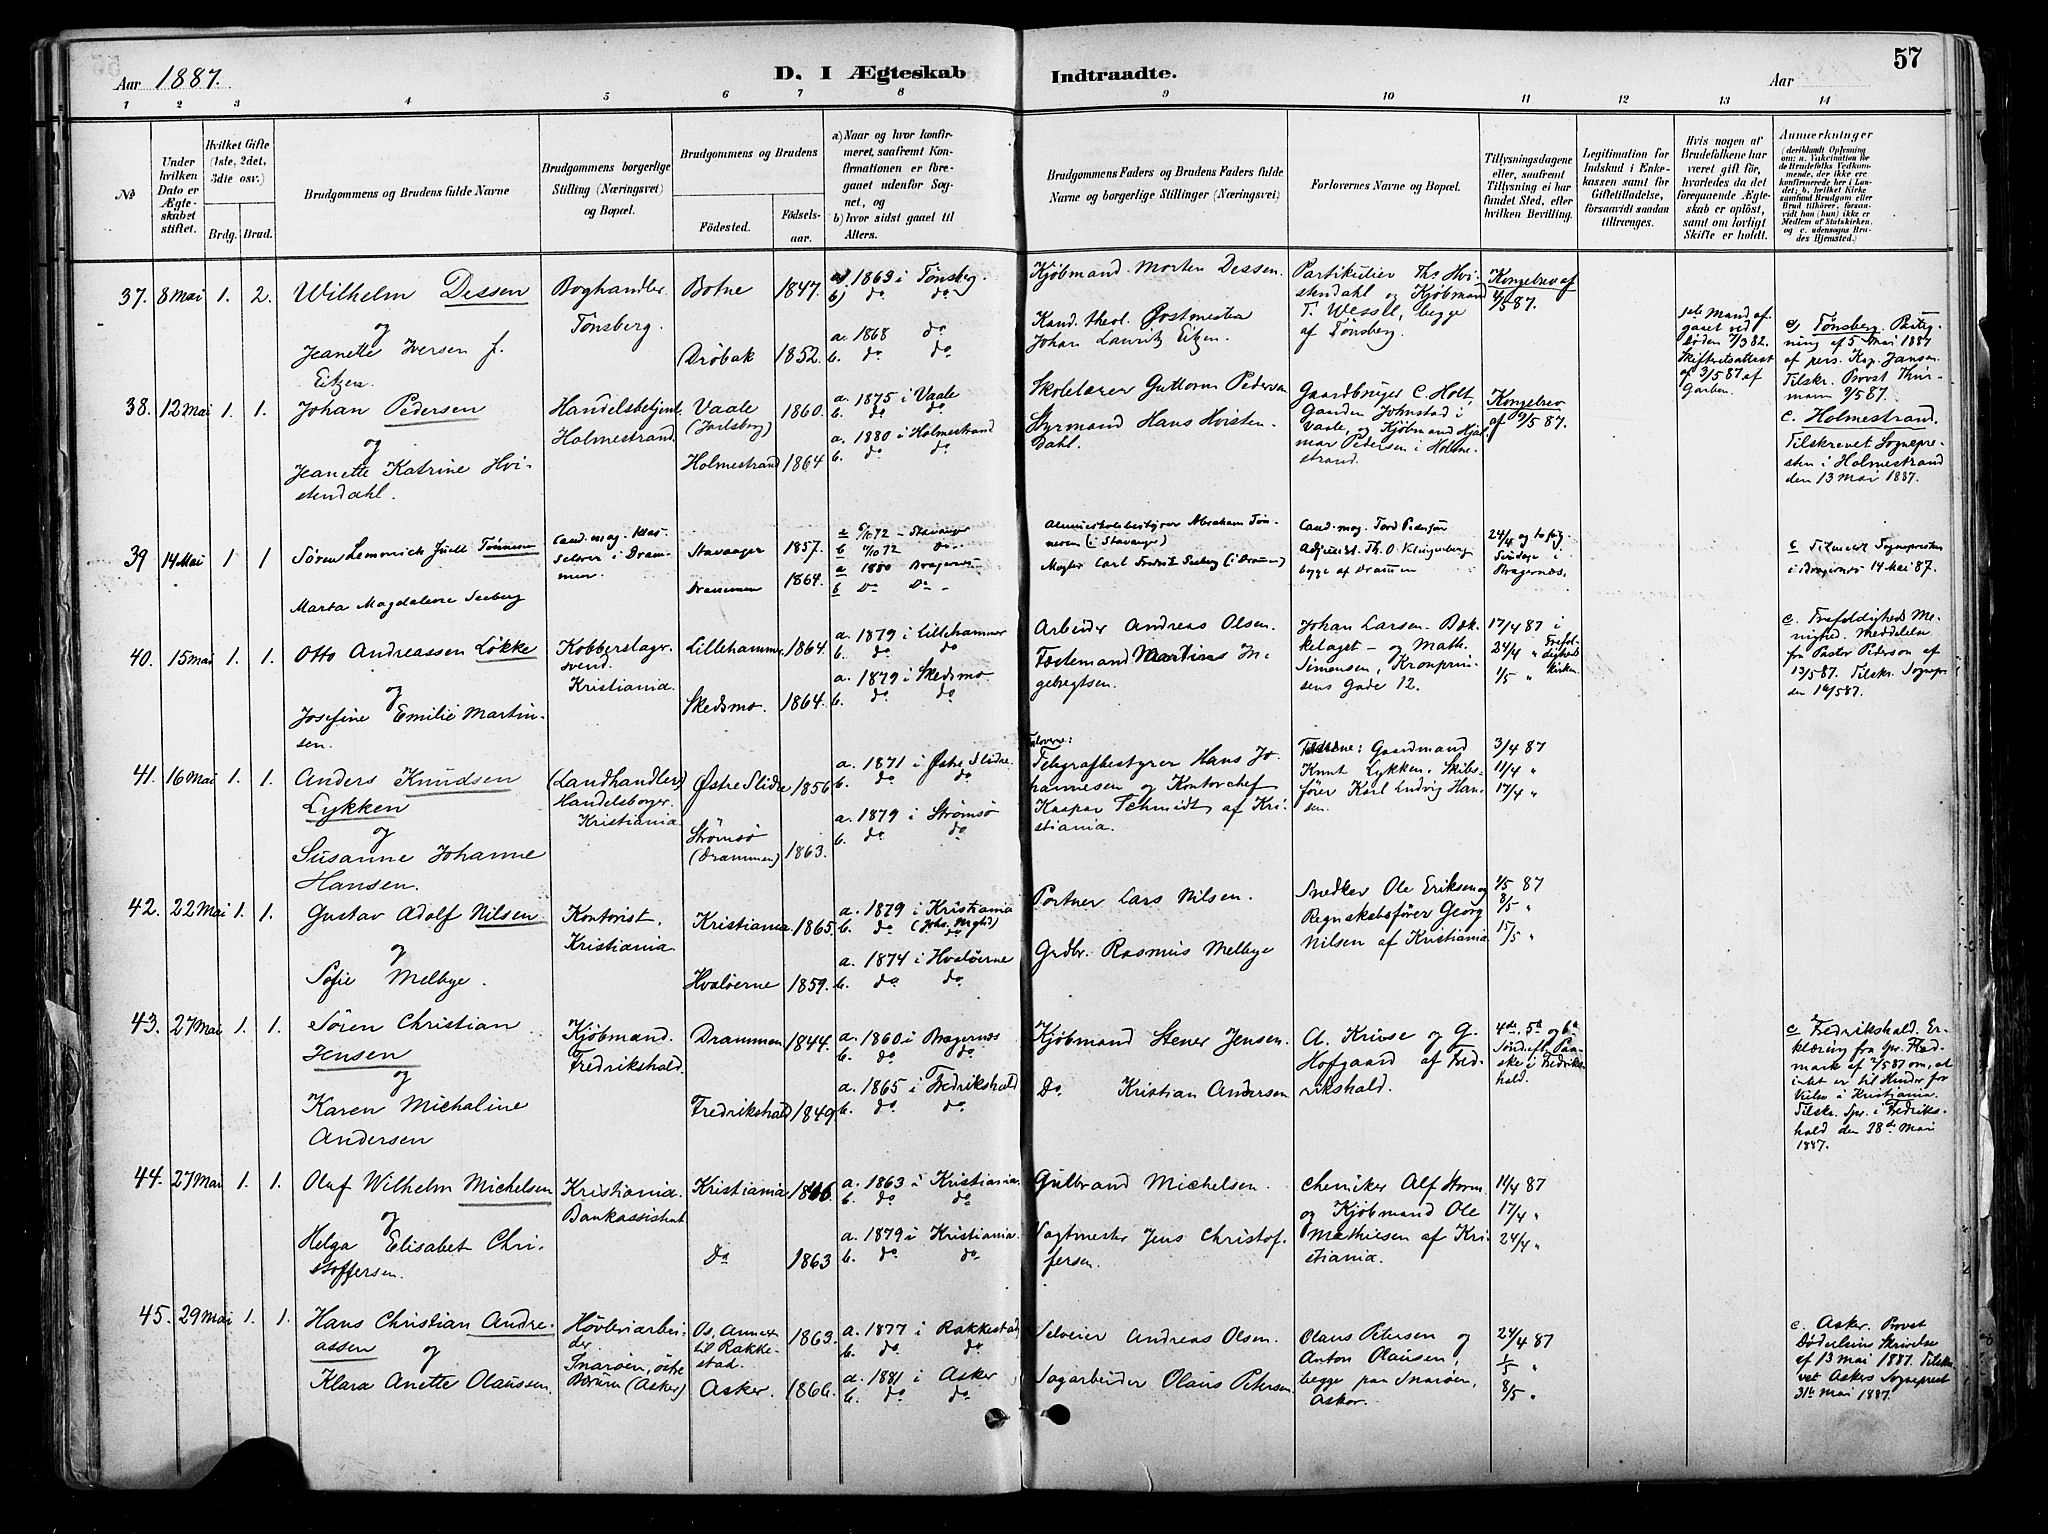 57
Aar 1887.
D. I Ægteskab Indtraadte.
Aar
1 2 3 4 5 6 7 8 9 10 11 12 13 14
No
Under hvilken Dato er Ægteskabet stiftet.
Hvilket Gifte (1ste, 2det, 3dte osv.)
Brdg. Brud.
Brudgommens og Brudens fulde Navne
Brudgommens borgerlige Stilling (Næringsvei) og Bopæl.
Brudgommens og Brudens
Fødested.
Fødselsaar.
a) Naar og hvor konfirmeret, saafremt Konfirmationen er foregaaet udenfor Sognet, og
b) hvor sidst gaaet til Alters.
Brudgommens Faders og Brudens Faders fulde Navne og borgerlige Stillinger (Næringsvei)
Forlovernes Navne og Bopæl.
Tillysningsdagene eller, saafremt Tillysning ei har fundet Sted, efter hvilken Bevilling.
Legitimation for Indskud i Enkekassen samt for Giftetilladelse, forsaavidt saadan tiltrænges.
Hvis nogen af Brudefolkene har været gift før, hvorledes da det foregaaende Ægteskab er opløst, samt om lovligt Skifte er holdt.
Anmærkninger (deriblandt Oplysning om: a. Vakcination for de Brudefolks Vedkommende, der ikke ere konfirmerede her i Landet, b. hvilket Kirkesamfund Brudgom eller Brud tilhører, forsaavidt han (hun) ikke er Medlem af Statskirken og c. udensogns Brudes Hjemsted.)
37. 8 Mai 1. 2.
Wilhelm Dessen
og
Jeanette Iversen f.
Eitzen.
Boghandler
Tönsberg.
Botne 1847.
Dröbak 1852.
a) 1863 i Tönsberg.
b) do do
a. 1868 do
b. do do
Kjøbmand Morten Dessen.
Kand. theol. Postmester
Johan Lauritz Eitzen.
Partikulier Ths Hvistendahl
og Kjøbmand
T. Wessel, begge
af Tönsberg.
Kongebrev af
4/5 87.
1ste Mand afgaaet
ved
Døden 7/3 82.
Skifteretsattest
af 3/5 87 af
Garben
c) Tönsberg. Paategning
af 5 Mai 1887
af pers. Kap. Jansen.
Tilskr. Provst Thurmann
9/5 87.
38. 12 Mai 1. 1.
Johan Pedersen
og
Jeanette Katrine Hvistendahl.
Handelsbetjent
Holmestrand.
Vaale
(Jarlsberg) 1860.
Holmestrand 1864
a. 1875 i Vaale
b. do do
a. 1880 i Holmestrand
b. do do
Skolelærer Guttorm Pedersen
Styrmand Hans Hvistendahl.
Gaardbruger C. Holt,
Gaarden Johnstad i
Vaale, og Kjøbmand Hjalmar
Pedersen i Holmestrand.
Kongebrev
af 9/5 87.
c. Holmestrand.
Tilskrevet Sognepresten
i Holmestrand
den 13 Mai 1887.
39 14 Mai 1 1
Sören Lemmich Juell Tönnesen
Marta Magdalene Seeberg
Cand. mag. Klasselærer
i Drammen.
Stavanger 1857.
Drammen 1864.
a 6/10 72 - Stavanger
b 11/10 72 do
a 1880 Bragernes
b Do Do
Almueskolebestyrer Abraham Tönnesen
(i Stavanger)
Mægler Carl Fredrik Seeberg (i Drammen)
Cand. mag. Tord Pedersen
Adjunkt Th. O. Klingenberg
begge af Drammen
24/4 og to følg.
Søndage i
Bragernes.
c Tilmeldt Sognepresten
i Bragernes 14 Mai 87.
40. 15 Mai 1. 1.
Otto Andreassen Løkke
og
Josefine Emilie Martinsen.
Kobberslagersvend
Kristiania.
Lillehammer 1864.
Skedsmo. 1864.
a. 1879 i Lillehammer
b. do do
a. 1879 i Skedsmo
b. do do
Arbeider Andreas Olsen.
Fæstemand Martinus Ingebregtsen.
Johan Larsen Bækkelaget
- og Math.
Simensen, Kronprinsens
Gade 12.
17/4 87 i
24/4 " Trefoldigheds
1/5 " Kirken
c. Trefoldigheds Menighed.
Meddelelse
fra Pastor Pederson af
13/5 87. Tilskr. Sognepresten
16/5 87.
41. 16 Mai 1. 1.
Anders Knudsen
Lykken
og
Susanne Johanne
Hansen.
(Landhandler)
Handelsborger.
Kristiania
Østre Slidre 1856
Strömsö
(Drammen) 1863.
a. 1871 i Østre Slidre.
b. do do
a. 1879 i Strömsö
b. do do
Forlovere:
Telegrafbestyrer Hans Johannesen
og Kontorchef
Kaspar Schmidt af Kristiania.
Fædrene: Gaardmand
Knut Lykken. Skibsfører
Karl Ludvig Hansen.
3/4 87
11/4 "
17/4 "
42. 22 Mai 1. 1.
Gustav Adolf Nilsen
og
Sofie Melbye.
Kontorist,
Kristiania
Kristiania 1865.
Hvaløerne 1859.
a. 1879 i Kristiania
(Johs. Mghd)
b. do do
a. 1874 i Hvaløerne
b. do do
Portner Lars Nilsen.
Grdbr. Rasmus Melbye
Snedker Ole Eriksen og
Regnskabsfører Georg
Nilsen af Kristiania
1/5 87
8/5 "
15/5 "
43. 27 Mai 1. 1.
Sören Christian
Jensen
og
Karen Michaline
Andersen
Kjøbmand.
Fredrikshald.
Drammen 1844.
Fredrikshald 1849.
a. 1860 i Bragernæs
b. do do
a. 1865 i Fredrikshald
b. do do
Kjøbmand Stener Jensen.
Do Kristian Andersen
A. Kruse og G.
Hofgaard af Fredrikshald.
4de, 5te og 6te
Sønd. eft. Paaske
i Fredrikshald.
c Fredrikshald. Erklæring
fra Spr. Flodmark
af 2/5 87 om, at
intet er til Hinder for
Vielse i Kristiania.
Tilskr. Spr. i Fredrikshald
den 28de Mai
1887.
44. 27 Mai 1. 1.
Olaf Wilhelm Michelsen
og
Helga Elisabet Christoffersen.
Kristiania.
Bankassistent
Kristiania
Do 1863
a. 1863 i Kristiania.
b. do do
a. 1879 i Kristiania.
b. do do
Gulbrand Michelsen.
Vagtmester Jens Christoffersen.
Chemiker Alf Storm
og Kjøbmand Ole
Mathiesen af Kristiania.
11/4 87
17/4 "
24/4 "
45. 29 Mai 1. 1.
Hans Christian Andreassen
og
Klara Anette Olaussen
Høvleriarbeider
Snarøen, östre
Bærum (Asker)
Os, Annex
til Rakkestad.
1863.
Asker. 1866.
a. 1877 i Rakkestad
b. do do
a. 1881 i Asker
b. do do
Selveier Andreas Olsen.
Sagarbeider Olaus Petersen
Olaus Petersen og
Anton Olausen,
begge paa Snarøen,
Asker.
24/4 87
1/5 "
8/5 "
c. Asker. Provst
Döderleins Skrivelse
af 13 Mai 1887. Tilskrevet
Askers Sogneprest
31te Mai 1887.